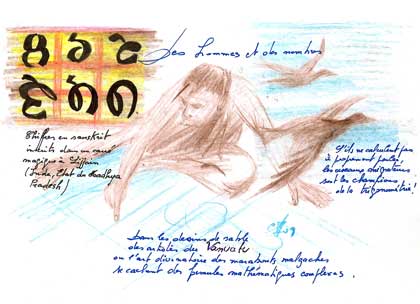 Des hommes et des nombres
Chiffres en sanskrit
inscrits dans un carré
magique à Ujjain
(Inde, Etat de Madhya
Pradesh)
S'ils ne calculent pas
à proprement parler,
les oiseaux migrateurs
sont les champions
de la trigonométrie!
Dans les dessins de sable
des artistes du Vanuatu
ou l'art divinatoire des marabouts malgaches
se cachent des formules mathématiques complexes.